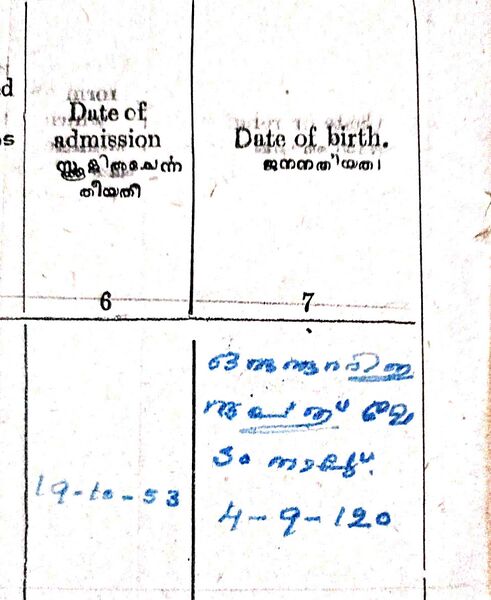 d
s
Date of
admission
സ്കൂളിൽചേർന്ന
തീയതി
Date of birth.
ജനനതീയതി
6
7
19-10-53
ഒരുനൂററിഇ
രുപതു് മേ
ടം നാലു്.
4-9-120